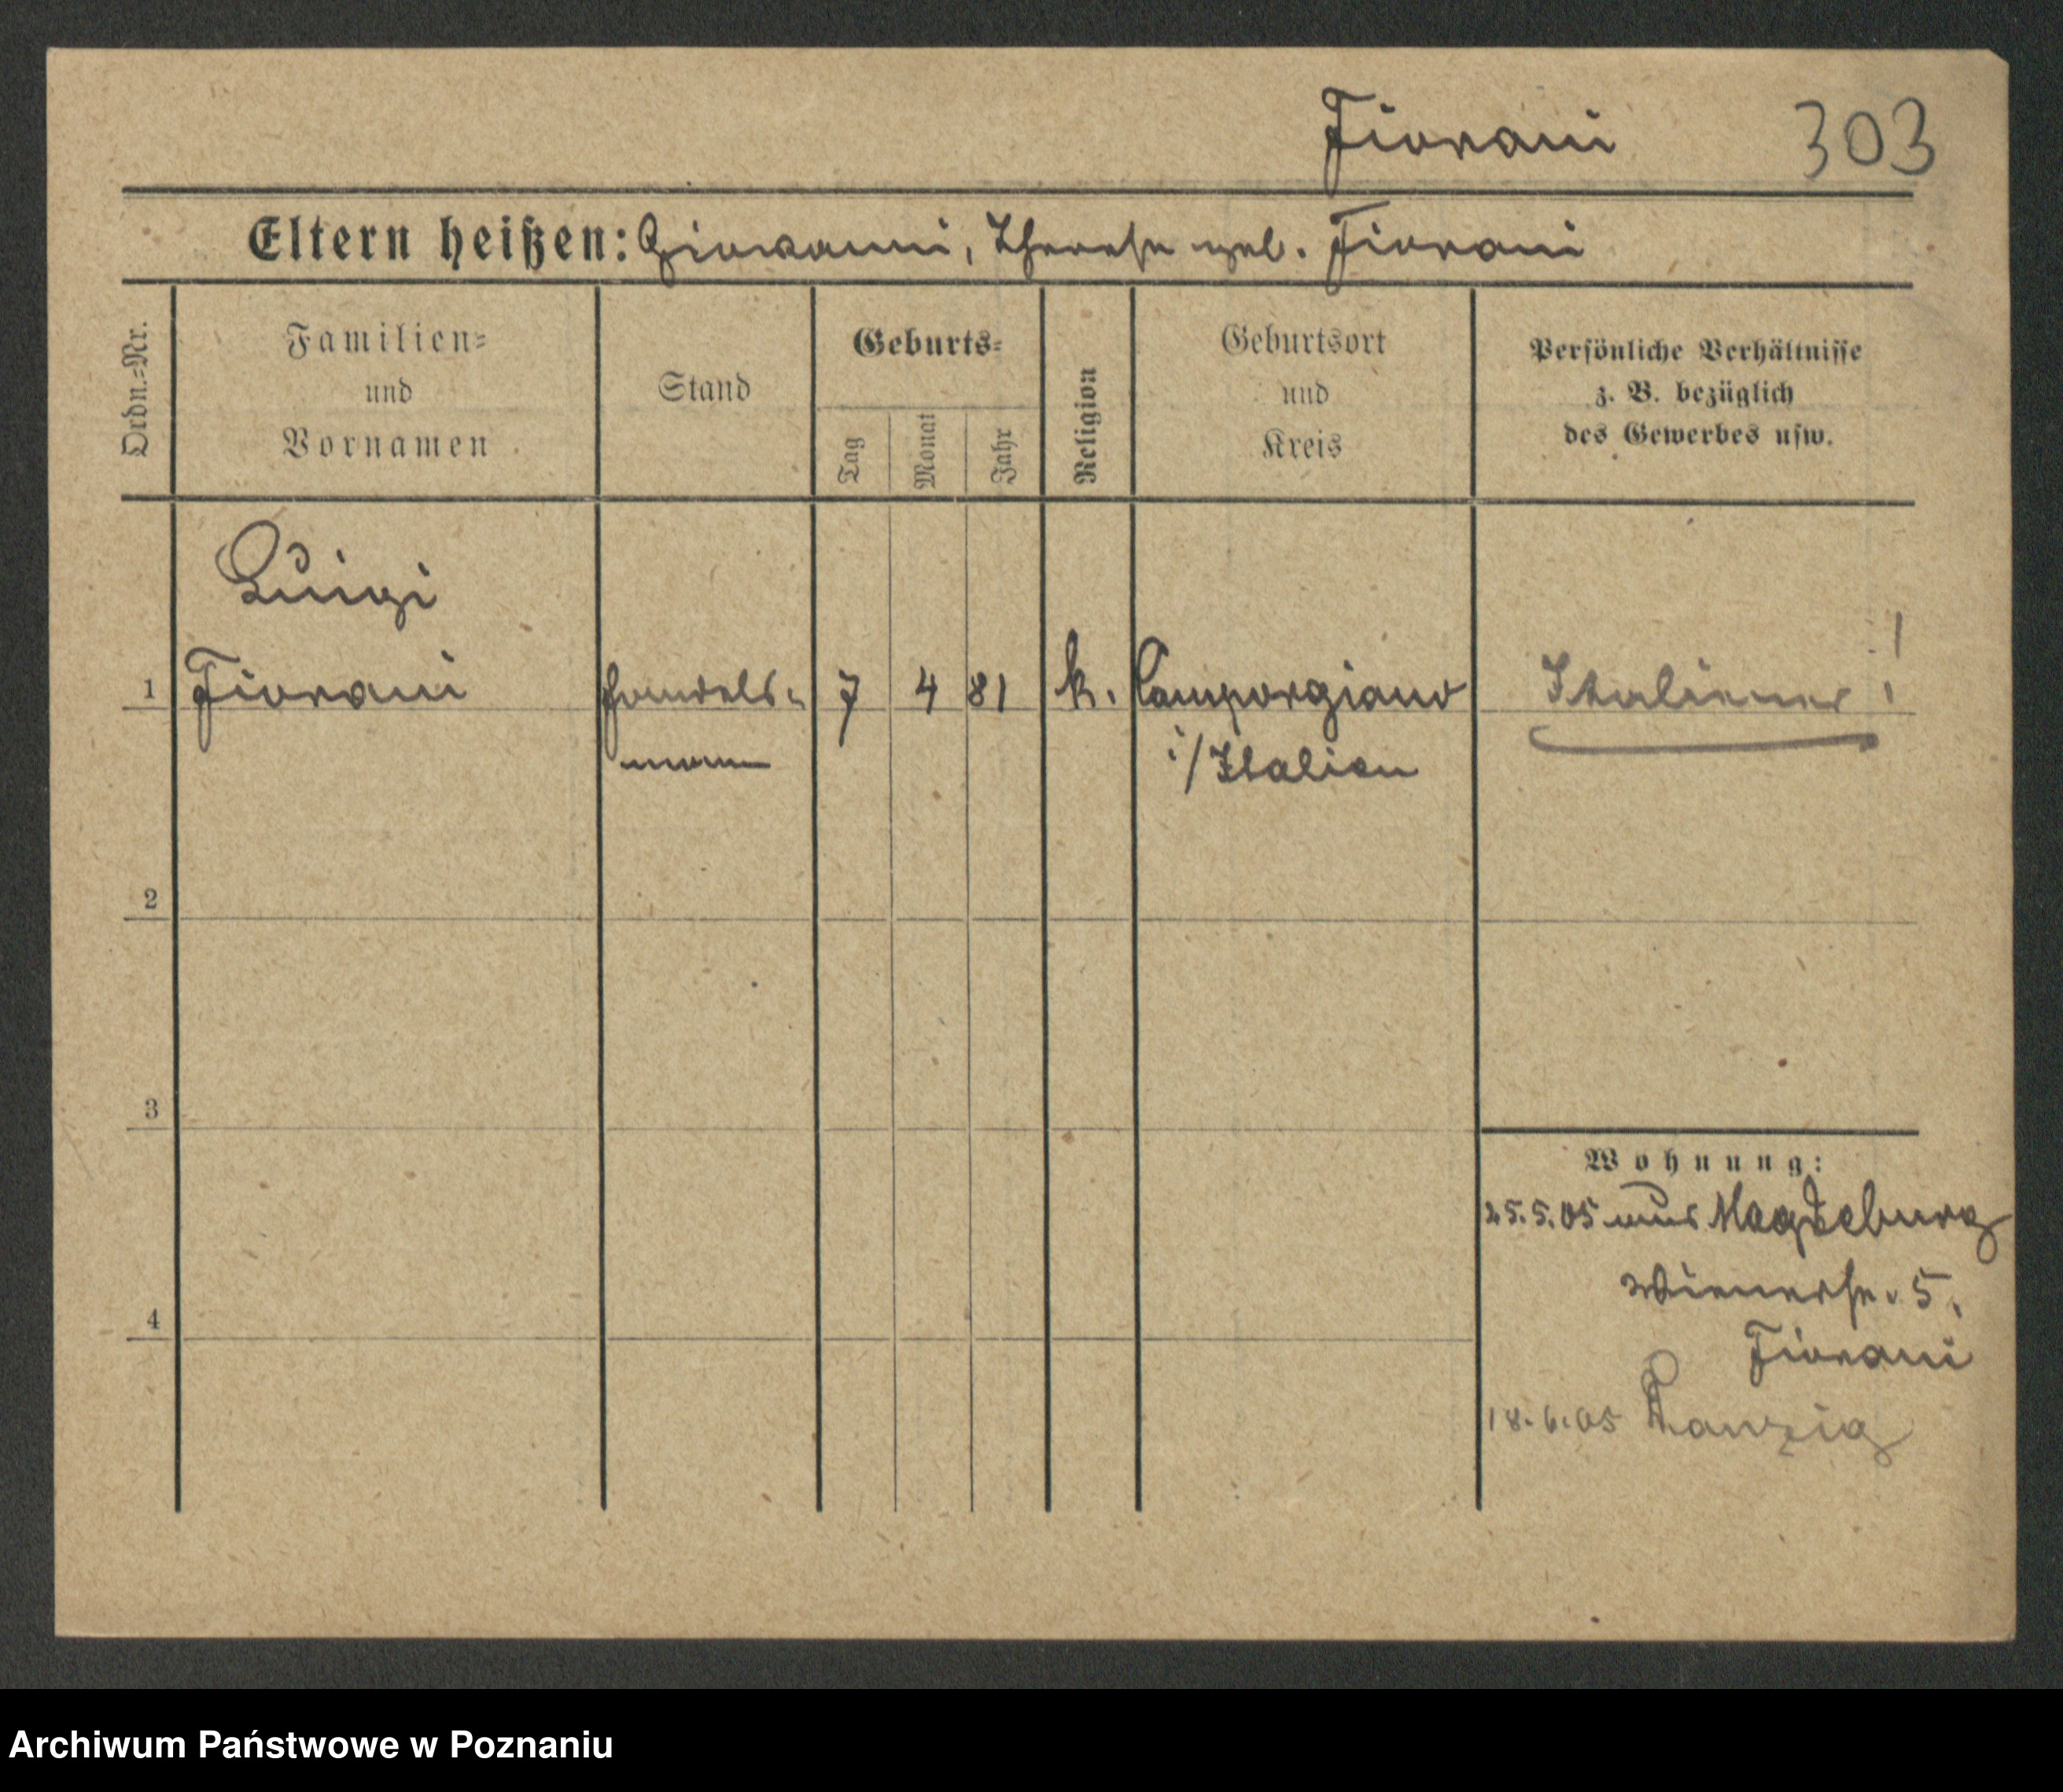 Fiorani 303
Eltern heißen: Giovanni, Therese geb. Fiorani
Ordn.-Nr.
Familien-
und
Vornamen
Stand
Geburts-
Tag
Monat
Jahr
Religion
Geburtsort
und
Kreis
Persönliche Verhältnisse
z. B. bezüglich
des Gewerbes usw.
Luigi
1 Fiorani Handels- 7 4 81 k. Camporgiano Italiener!
mann i/Italien
2
3
Wohnung:
25.5.05 aus Magdeburg
Wienerstr. 5.
4
Fiorani
18.6.05 Danzig
Archiwum Państwowe w Poznaniu